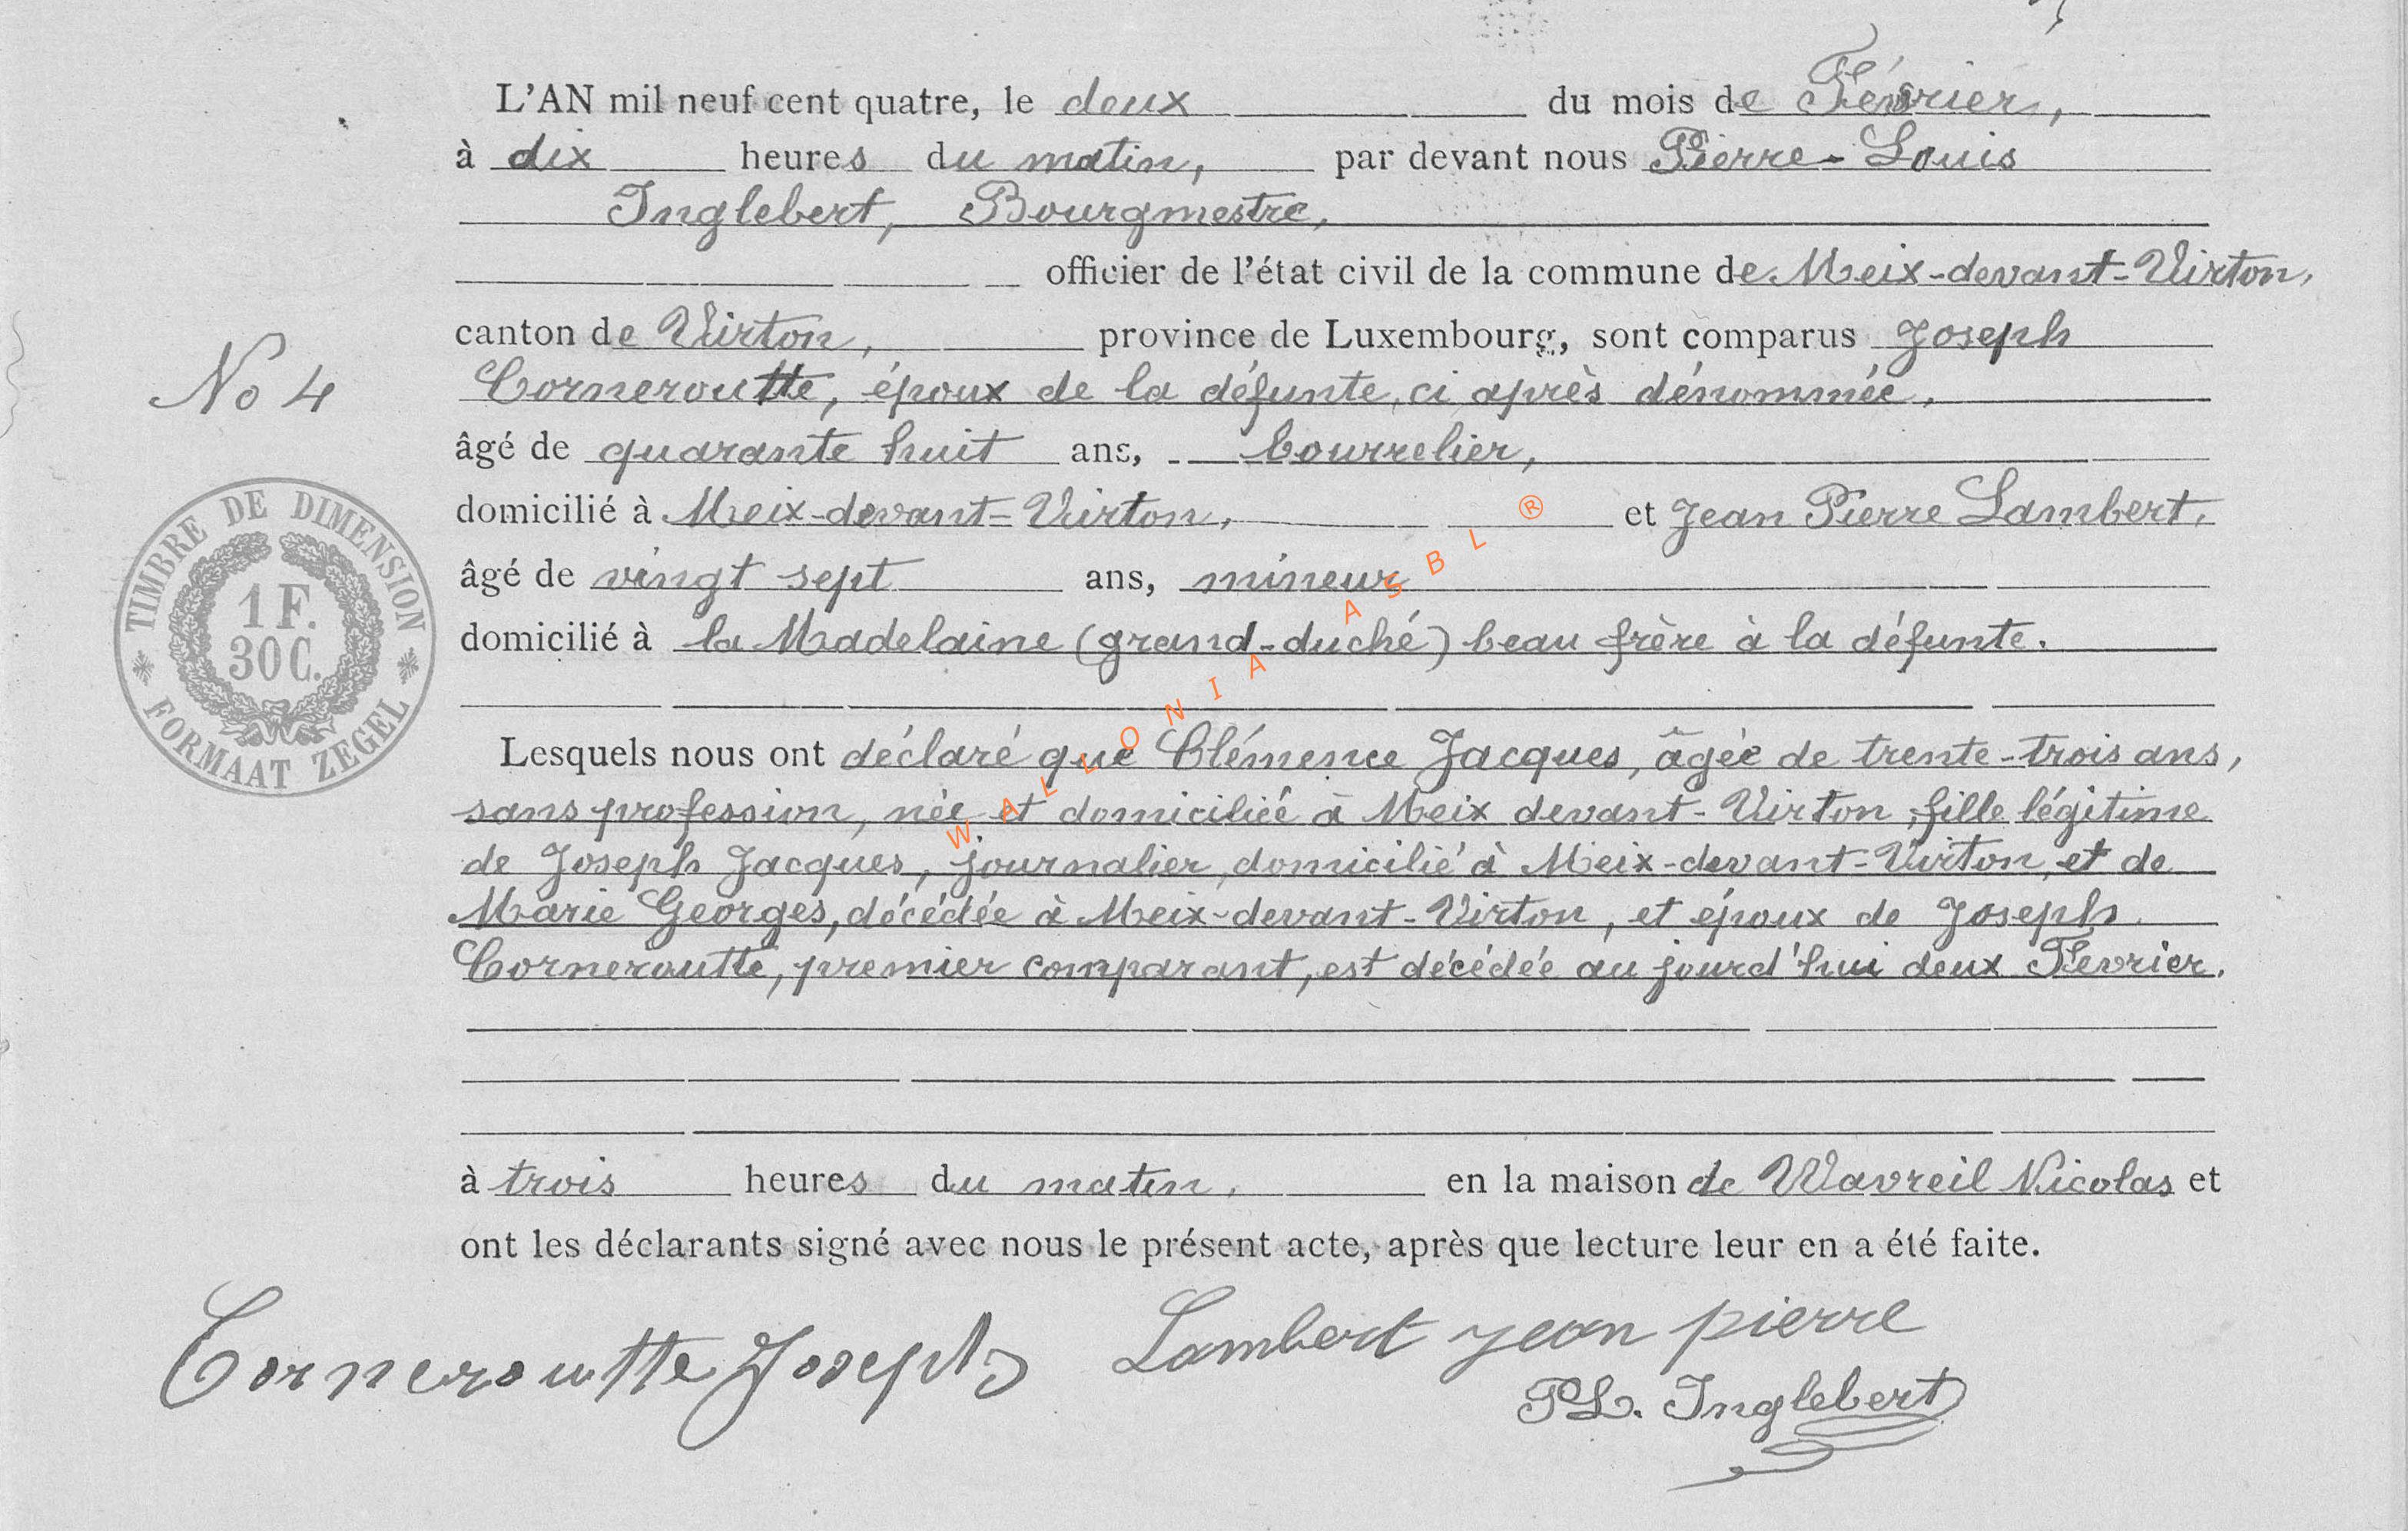 L'AN mil neuf cent quatre, le deux du mois de Février,
à dix heures du matin, par devant nous Pierre-Louis
Inglebert, Bourgmestre,
officier de l'état civil de la commune de Meix-devant-Virton,
canton de Virton, province de Luxembourg, sont comparus Joseph
Corneroutte, époux de la défunte, ci après dénommée,
No 4
âgé de quarante huit ans, bourrelier,
domicilié à Meix-devant-Virton, et Jean Pierre Lambert,
âgé de vingt sept ans, mineur
domicilié à la Madelaine (grand-duché) beau frère à la défunte.
TIMBRE DE DIMENSION
1 F.
30 C.
FORMAAT ZEGEL
WALLONIA ASBL ®
Lesquels nous ont déclaré que Clémence Jacques, âgée de trente-trois ans,
sans profession, née et domiciliée à Meix devant-Virton, fille légitime
de Joseph Jacques, journalier, domicilié à Meix-devant-Virton, et de
Marie Georges, décédée à Meix-devant-Virton, et époux de Joseph
Corneroutte, premier comparant, est décédée au jourd'hui deux Fevrier.
à trois heures du matin, en la maison de Wavreil Nicolas et
ont les déclarants signé avec nous le présent acte, après que lecture leur en a été faite.
Corneroutte Joseph Lambert jean pierre
PL. Inglebert